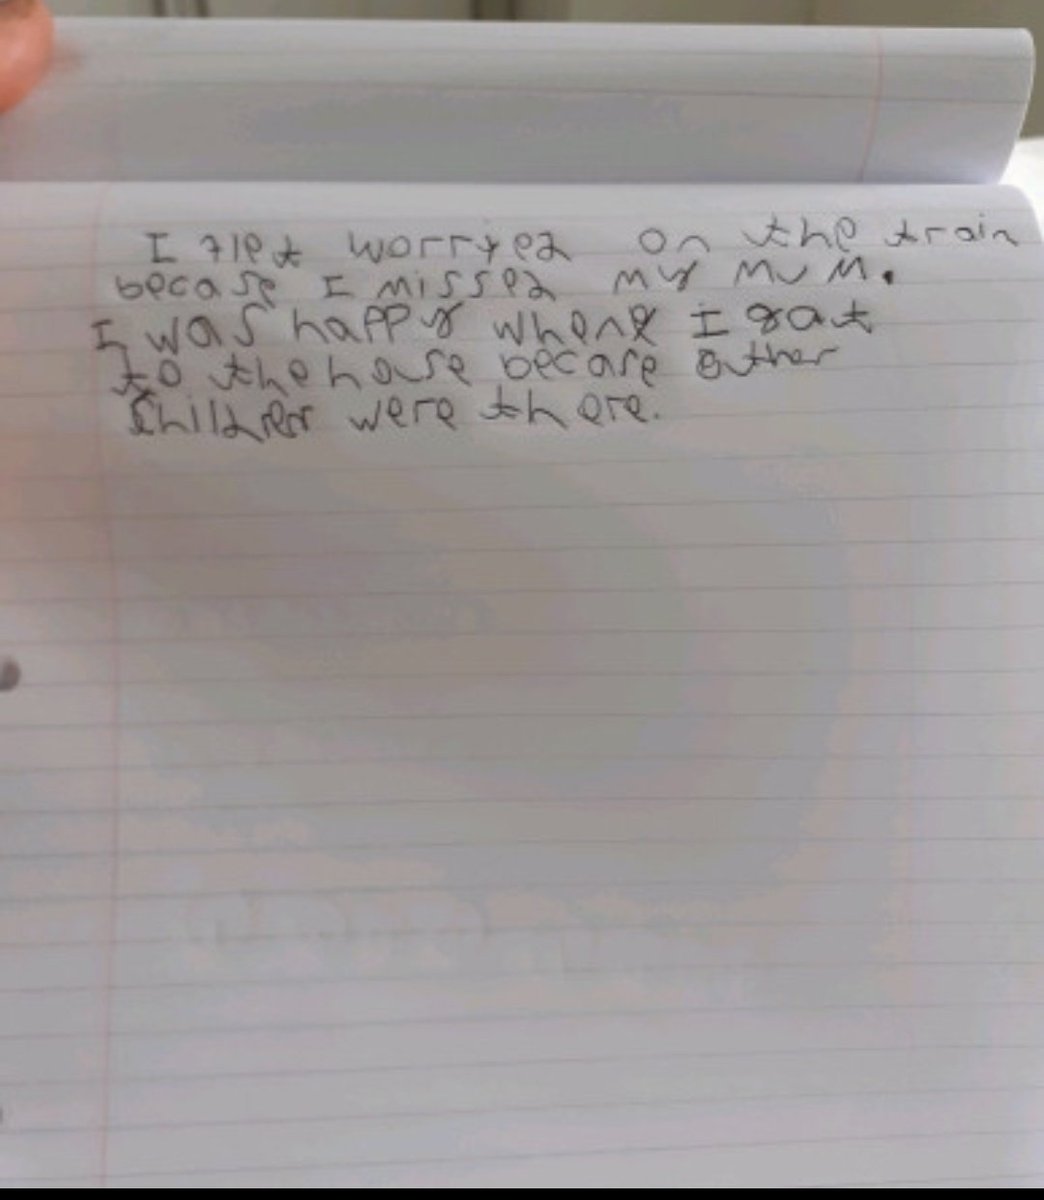 I flet worryed on the train
becase I missed my mum.
I was happy whene I gat
to the house becase outher
Children were there.